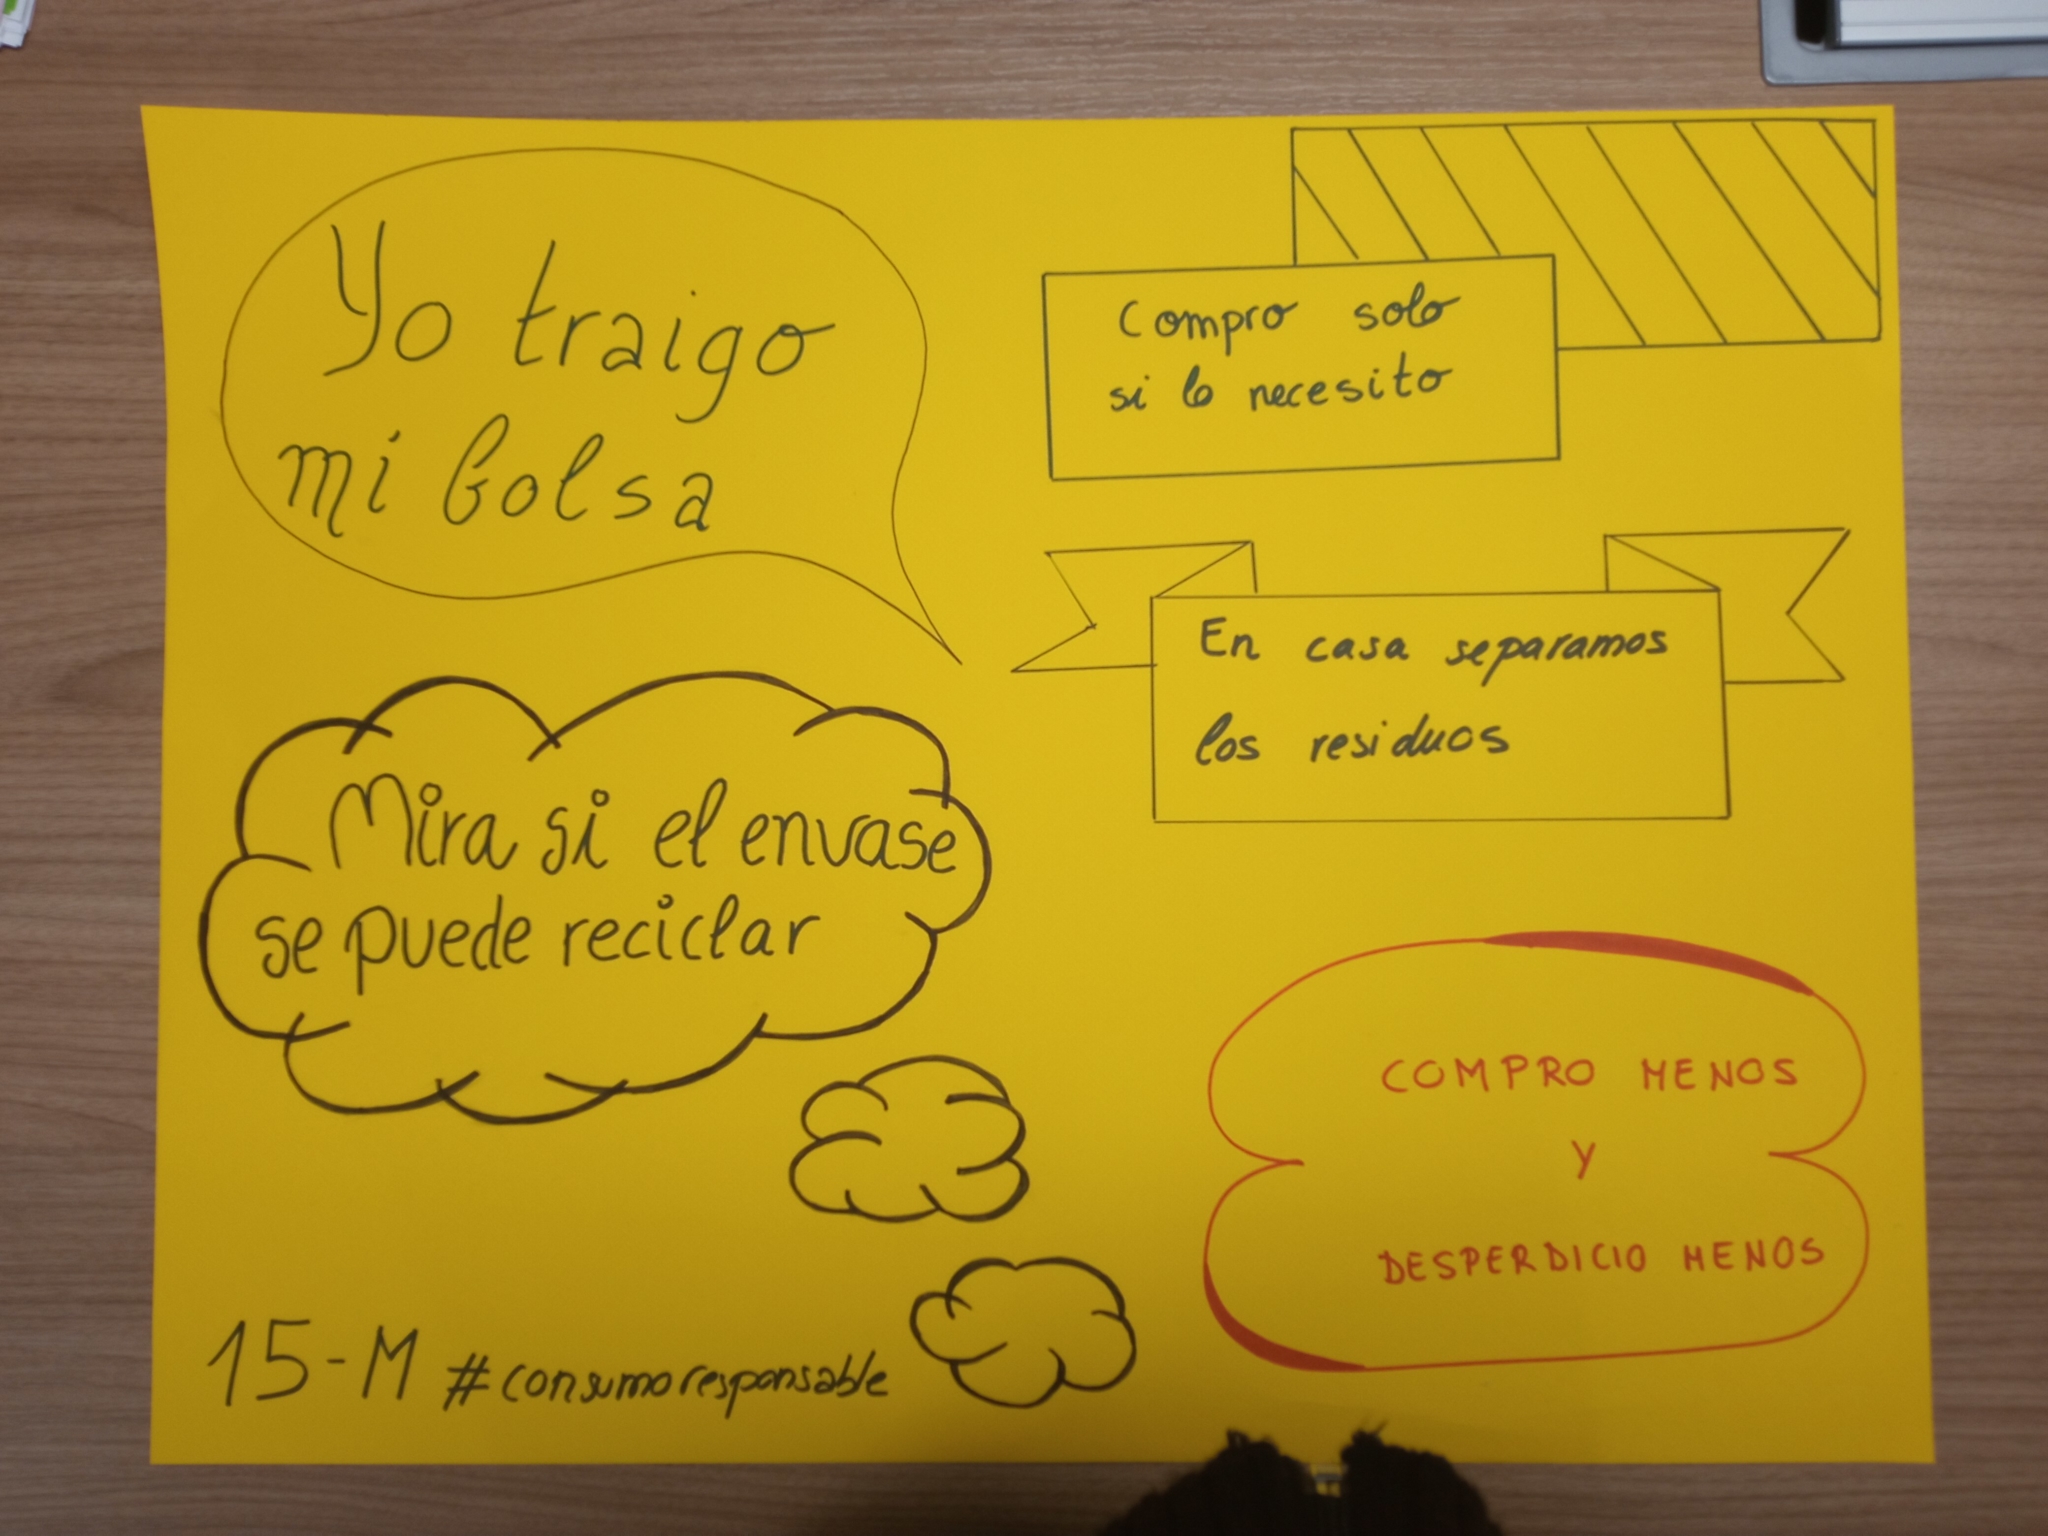 Yo traigo
mi bolsa
Compro solo
si lo necesito
En casa separamos
los residuos
Mira si el envase
se puede reciclar
COMPRO MENOS
Y
DESPERDICIO MENOS
15-M #consumoresponsable